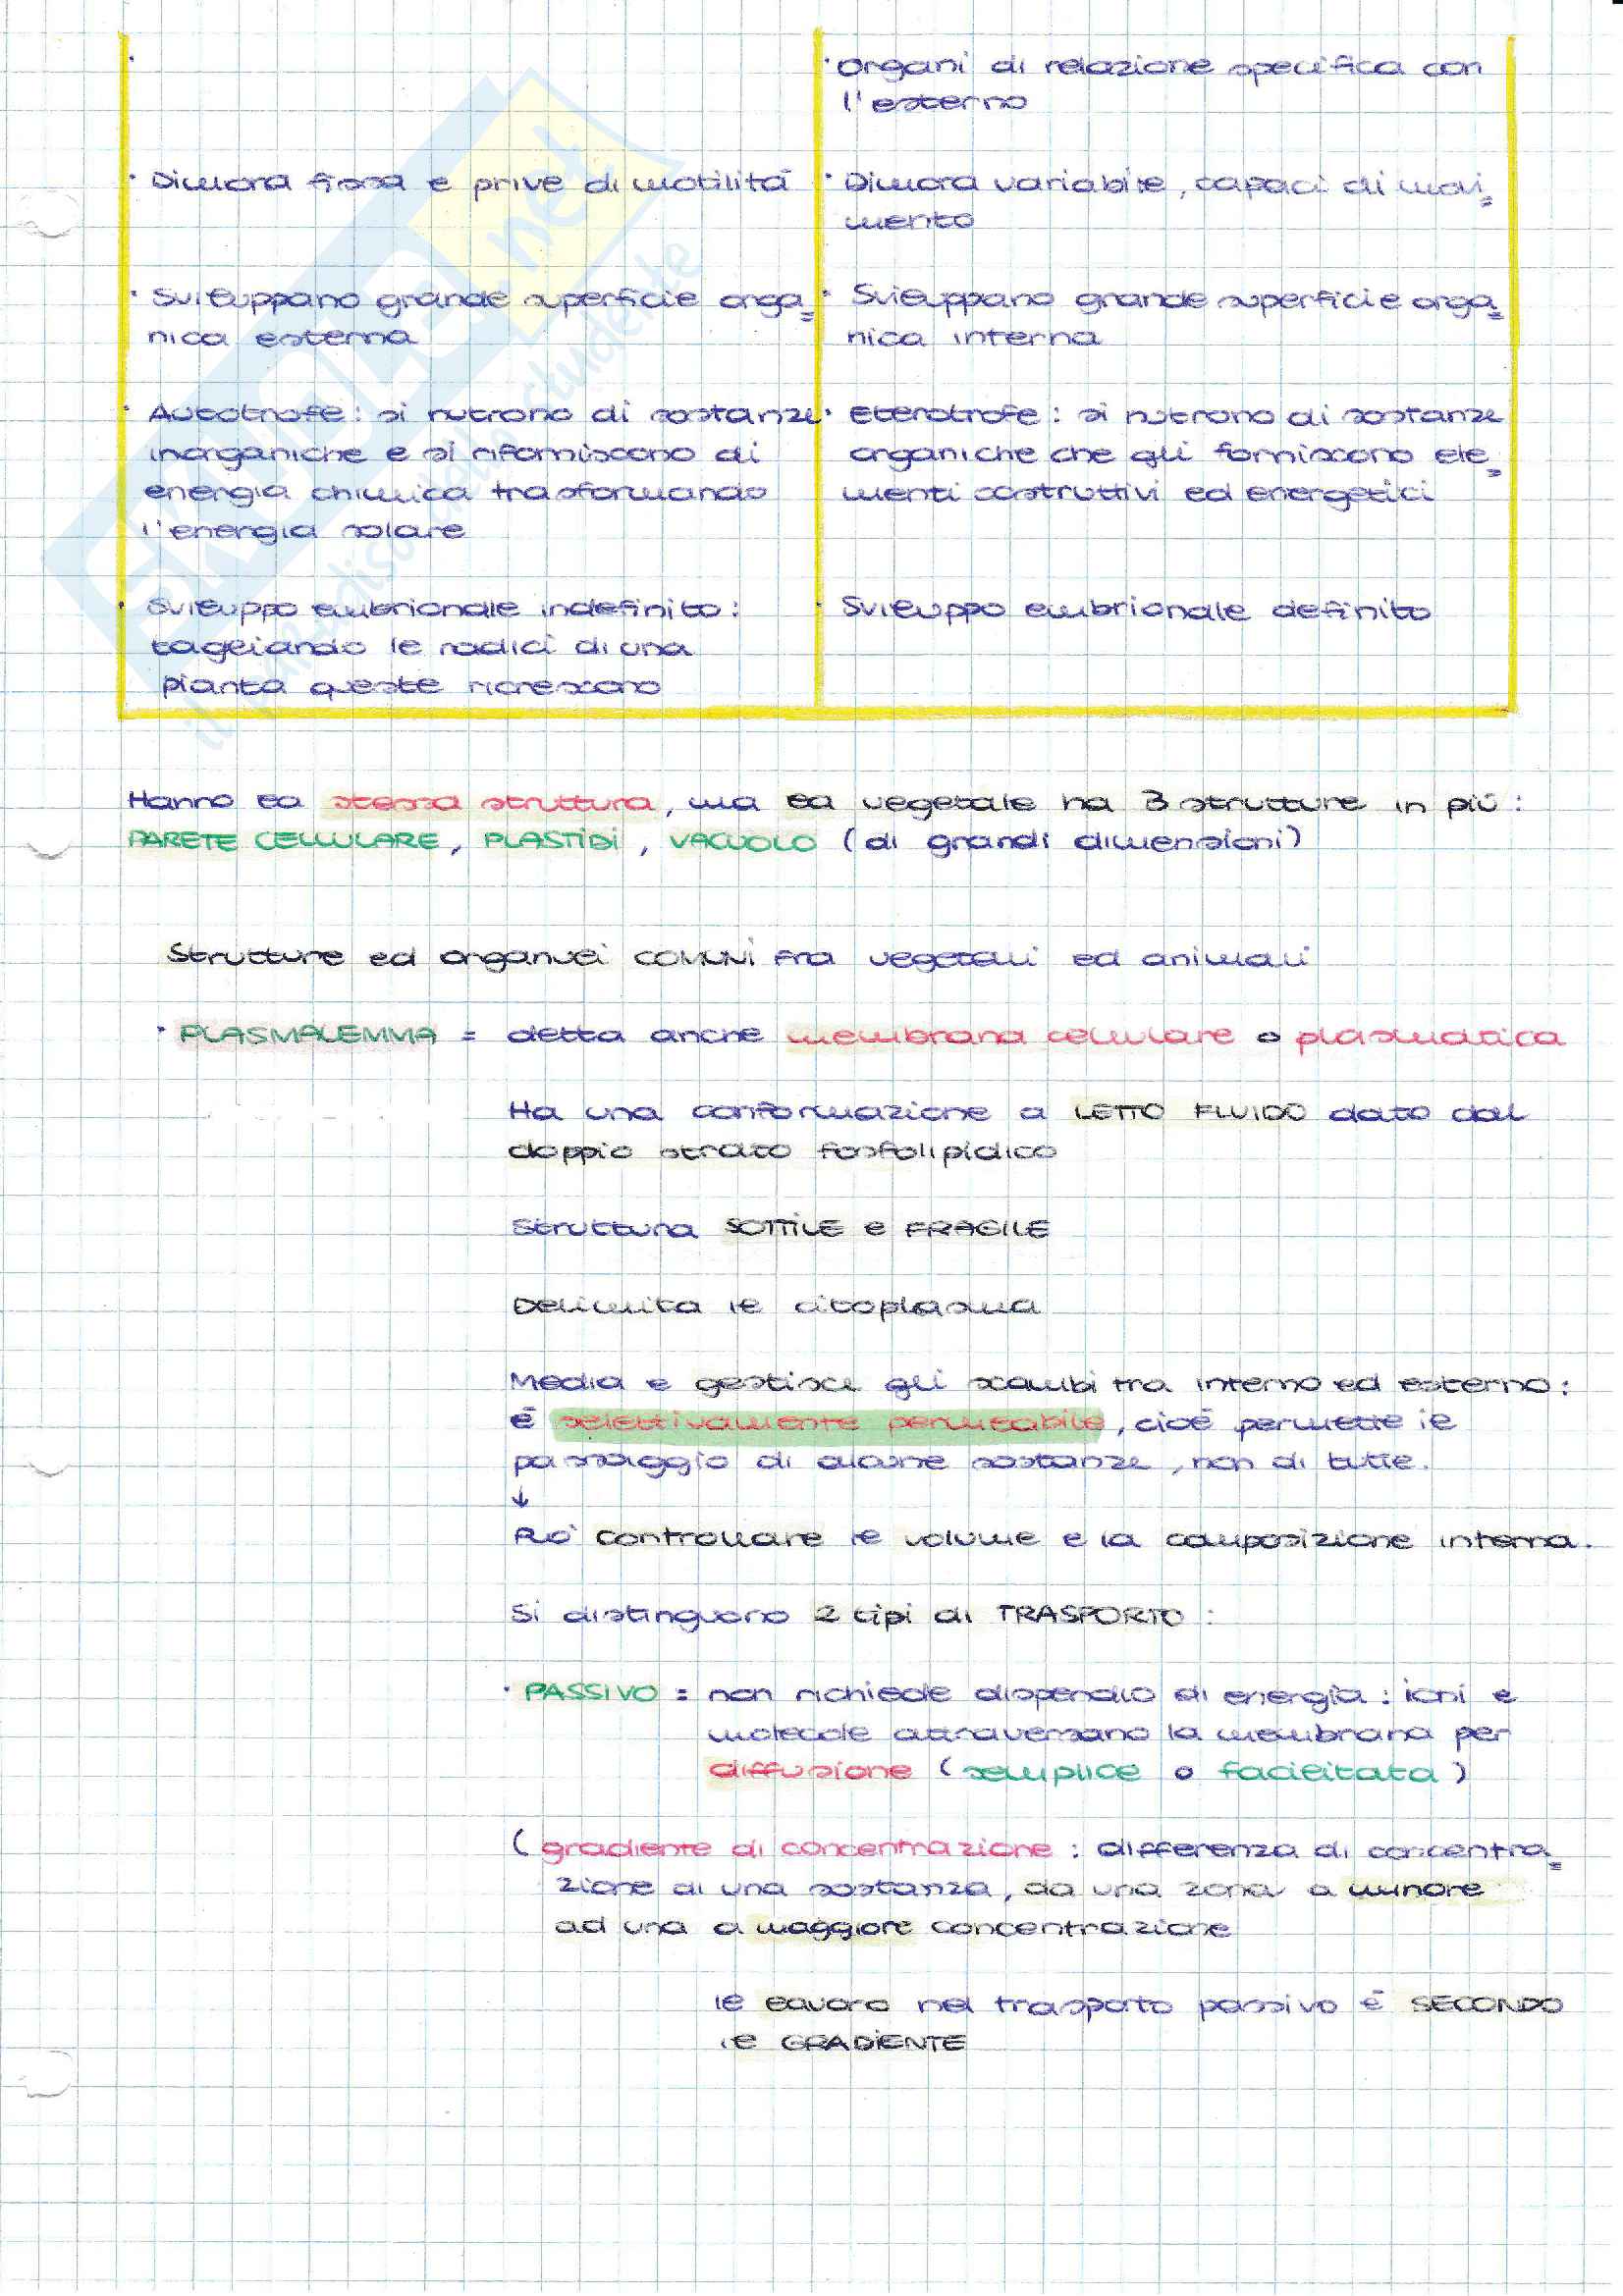 · Organi di relazione specifica con
l'esterno
· Dimora fissa e prive di motilità
· Dimora variabile, capaci di movi=
mento
· Sviluppano grande superficie orga=
nica esterna
· Sviluppano grande superficie orga=
nica interna
· Autotrofe: si nutrono di sostanze
inorganiche e si riforniscono di
energia chimica trasformando
l'energia solare
· Eterotrofe: si nutrono di sostanze
organiche che gli forniscono ele=
menti costruttivi ed energetici
· Sviluppo embrionale indefinito:
tagliando le radici di una
pianta queste ricrescono
· Sviluppo embrionale definito
Hanno la stessa struttura, ma la vegetale ha 3 strutture in più:
PARETE CELLULARE, PLASTIDI, VACUOLO (di grandi dimensioni)
Strutture ed organuli COMUNI fra vegetali ed animali
· PLASMALEMMA = detta anche membrana cellulare o plasmatica
Ha una conformazione a LETTO FLUIDO dato dal
doppio strato fosfolipidico
Struttura SOTTILE e FRAGILE
Delimita il citoplasma
Media e gestisce gli scambi tra interno ed esterno:
è selettivamente permeabile, cioè permette il
passaggio di alcune sostanze, non di tutte.
↓
Può controllare il volume e la composizione interna.
Si distinguono 2 tipi di TRASPORTO:
· PASSIVO = non richiede dispendio di energia: ioni e
molecole attraversano la membrana per
diffusione (semplice o facilitata)
(gradiente di concentrazione: differenza di concentra=
zione di una sostanza, da una zona a minore
ad una a maggiore concentrazione
il lavoro nel trasporto passivo è SECONDO
il GRADIENTE
SKUOLA.net
il paradiso dello studente